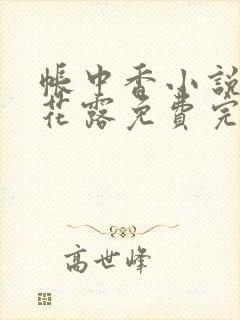 帐中香小說
花露免費完
高世峰